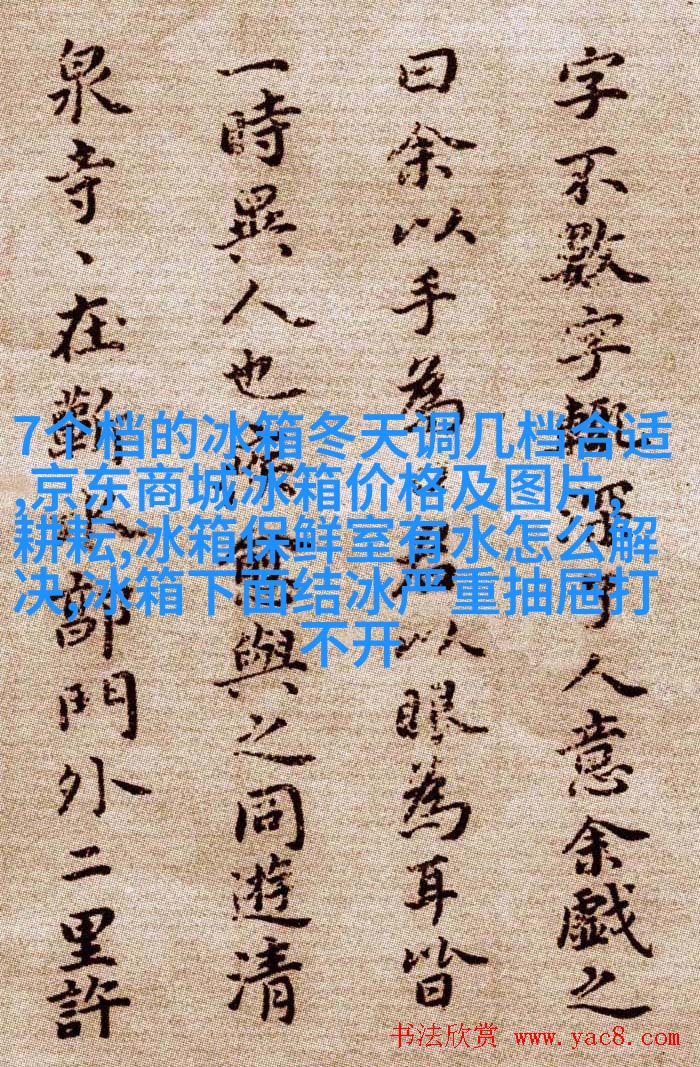 字不數字輒了人意余戲之
曰余以手為以眼為耳皆
一時異人也與之同遊清
泉寺、在蘄水郭門外二里許
7个档的冰箱冬天调几档合适
,京东商城冰箱价格及图片,
耕耘,冰箱保鲜室有水怎么解
决,冰箱下面结冰严重抽屉打
不开
书法欣赏 www.yac8.com